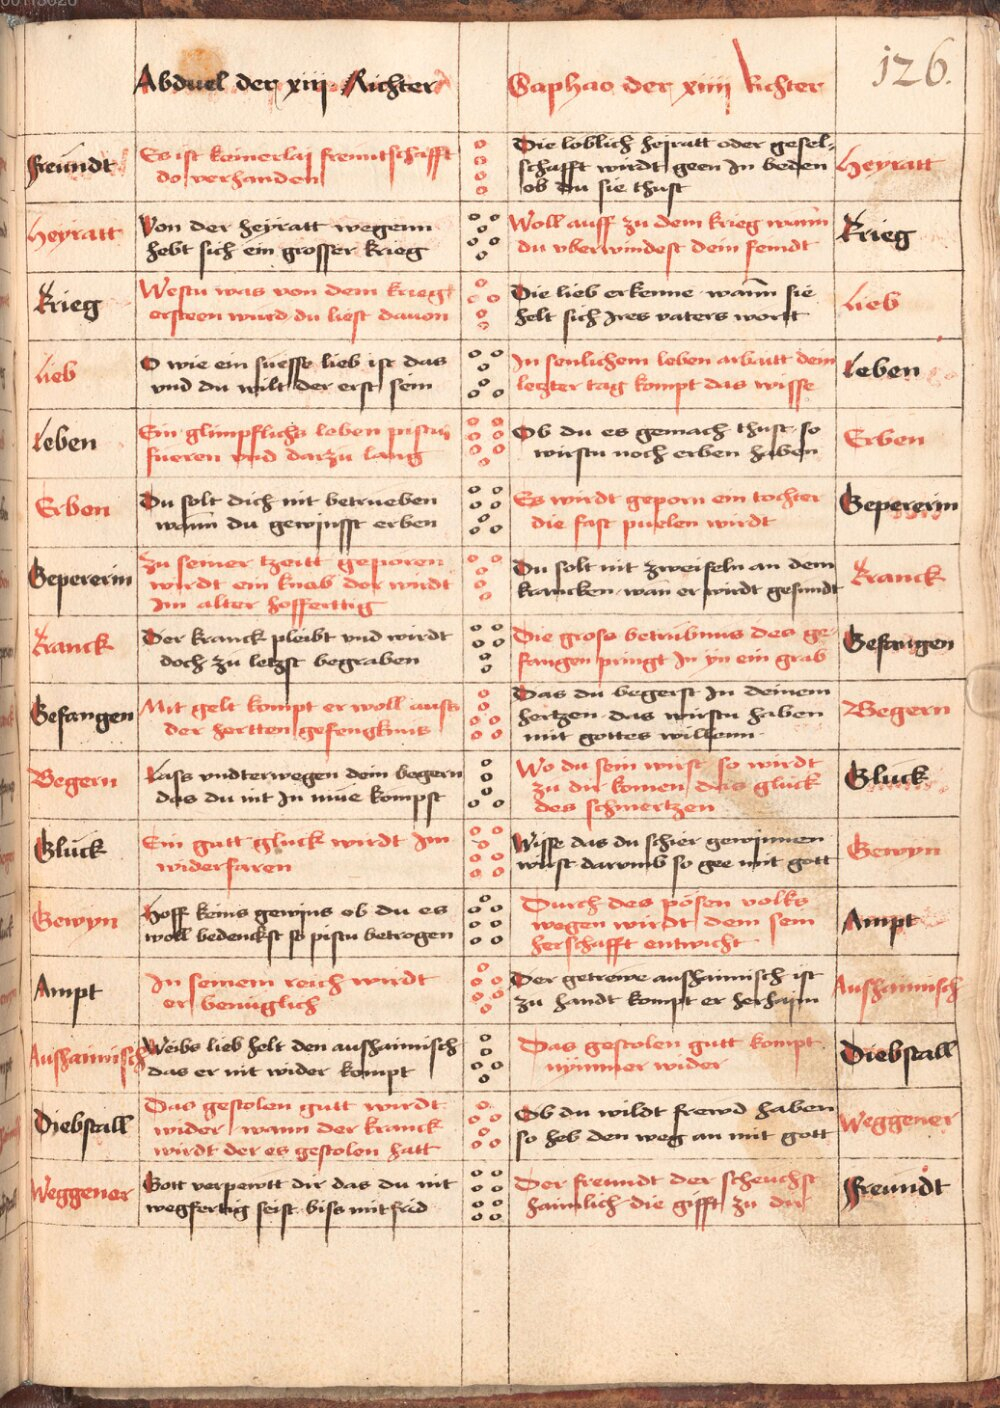 00113020
126.
Abduel der xiij Richter
Gaphao der xiiij Richter
Freundt
Es ist keinerlaj freuntschafft
do verhanden
Die loblich hejratt oder gesel-
schafft wirdt geen In beden
ob du sie thust
Heyratt
Heyratt
Von der heyratt wegenn
hebt sich ein grosser krieg
Woll auff zu dem krieg wann
du vberwindest dein feindt
Krieg
Krieg
Westu was von dem krieg
ersteen wurd du liest dauon
Die lieb erkenne wann sie
helt sich Ires vaters wortt
Lieb
Lieb
O wie ein suesse lieb ist das
vnd du wilt der erst sein
In senlichem leben arbaitt dein
letzter tag kompt das wisse
Leben
Leben
Ein glimpflichs leben pistu
fueren vnd darzu lang
Ob du es gemach thust so
wirstu noch erben haben
Erben
Erben
Du solt dich nit betrueben
wann du gewinsst erben
Es wirdt geporn ein tochter
die fast puelen wirdt
Gepererin
Gepererin
Zu seiner tzeitt geporen
wirdt ein knab der wirdt
Im alter hoffertig
Du solt nit zweifeln an dem
krancken wan er wirdt gesundt
Kranck
Kranck
Der kranck pleibt vnd wirdt
doch zu letzst begraben
Die gross betrubnus des ge-
fangen pringt In yn ein grab
Gefangen
Gefangen
Mit gelt kompt er woll auss
der hertten gefengknus
Das du begerst In deinem
hertzen das wirstu haben
mit gottes willenn
Begern
Begern
Lass vndterwegen dein begern
das du nit In mue kompst
Wo du sein wirst so wirdt
zu dir komen das gluck
des schmertzen
Gluck
Gluck
Ein gutt gluck wirdt Im
widerfaren
Wisse das du schier gewinnen
wirst darumb so gee mit gott
Gewyn
Gewyn
Hoff keins gewins ob du es
woll bedenckst so pistu betrogen
Durch des pösen volks
wegen wirdt dem sein
herschafft entwicht
Ampt
Ampt
In seinem reich wirdt
er benüglich
Der getrewe aushaimisch ist
zu handt kompt er herhaim
Aushaimisch
Aushaimisch
Weibs lieb helt den aushaimisch
das er nit wider kompt
Das gestolen gutt kompt
nymmer wider
Diebstall
Diebstall
Das gestolen gutt wirdt
wider wann der kranck
wirdt der es gestolen hatt
Ob du wildt frewd haben
so heb den weg an mit gott
Weggener
Weggener
Gott verpewtt dir das du nit
wegfertig seist biss mit frid
Der freundt der scheuchst
haimlich die gifft zu dir
Freundt